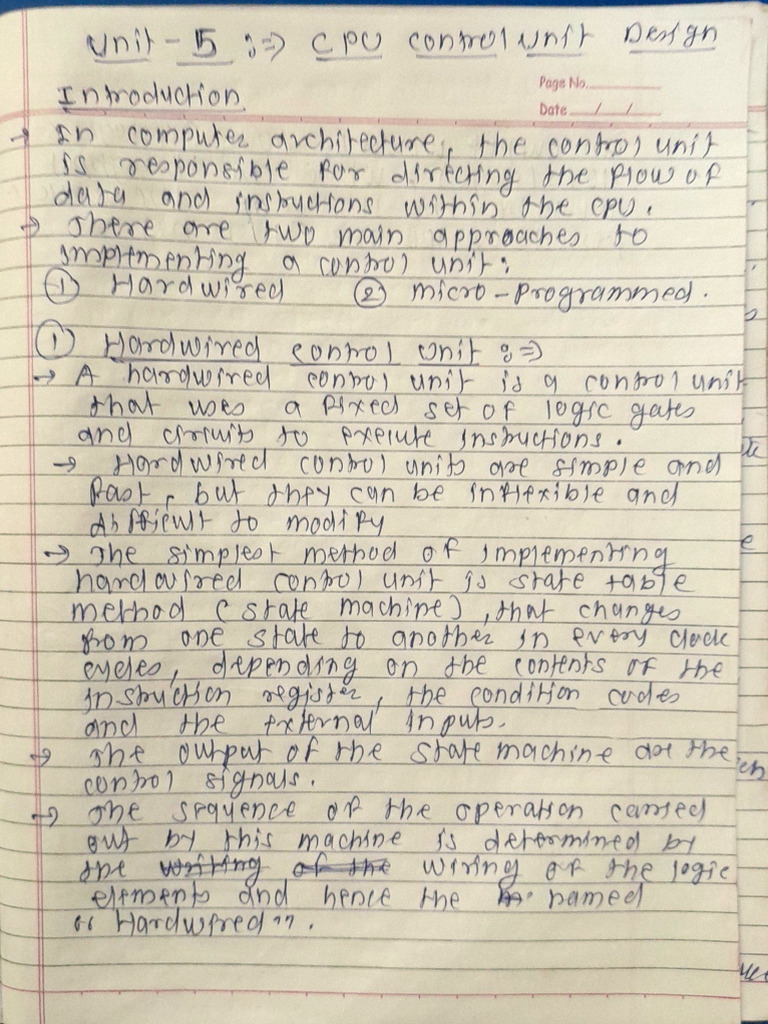 Unit - 5 :⇒ CPU control unit Design
Page No.
Introduction
Date / /
→ In computer architecture, the control unit
is responsible for directing the flow of
data and instructions within the CPU.
→ There are two main approaches to
implmenting a control unit:
① Hardwired ② micro-programmed.
① Hardwired control unit :⇒
→ A hardwired control unit is a control unit
that uses a fixed set of logic gates
and circuits to execute instructions.
→ Hardwired control units are simple and
fast, but they can be inflexible and
difficult to modify
→ The simplest method of implementing
hardwired control unit is state table
method (state machine), that changes
from one state to another in every clock
cycles, depending on the contents of the
instruction register, the condition codes
and the external inputs.
→ The output of the state machine are the
control signals.
→ The sequence of the operation carried
out by this machine is determined by
the writing of the wiring of the logic
elements and hence the named
"Hardwired".